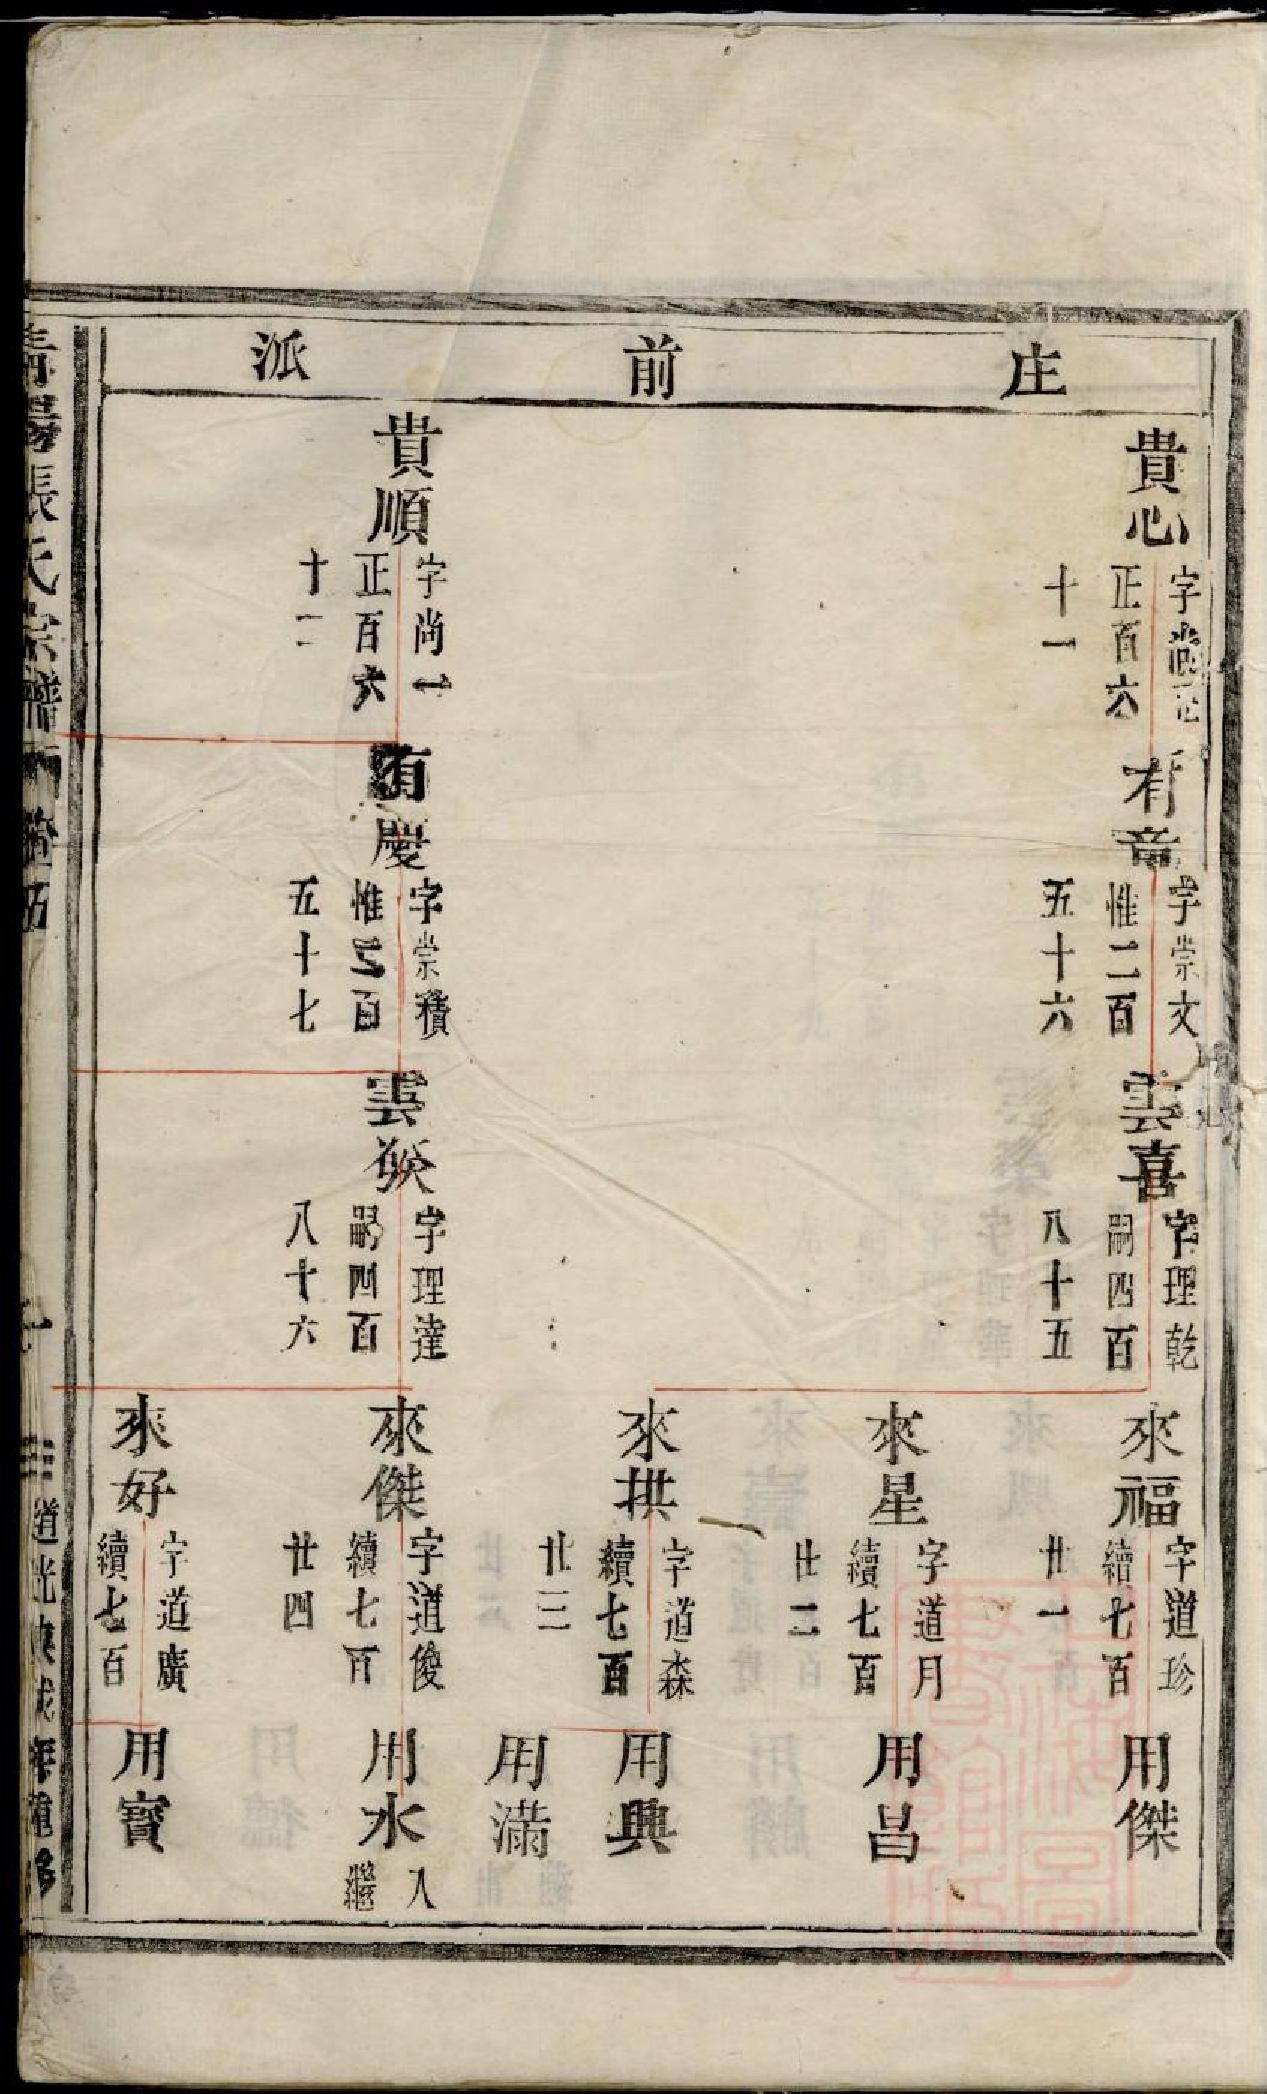 庄前派
貴心
字尚
正百六
十一
有章
字崇文
惟二百
五十六
雲喜
字理乾
嗣四百
八十五
來福
字道珍
續七百
廿一
用傑
來星
字道月
續七百
廿二
用昌
來拱
字道森
續七百
廿三
用興
用滿
貴順
字尚一
正百六
十二
有慶
字崇積
惟二百
五十七
雲
字理達
嗣四百
八十六
來傑
字道俊
續七百
廿四
用水
入
繼
來好
字道廣
續七百
用寶
張氏宗譜
道光庚戌年重修